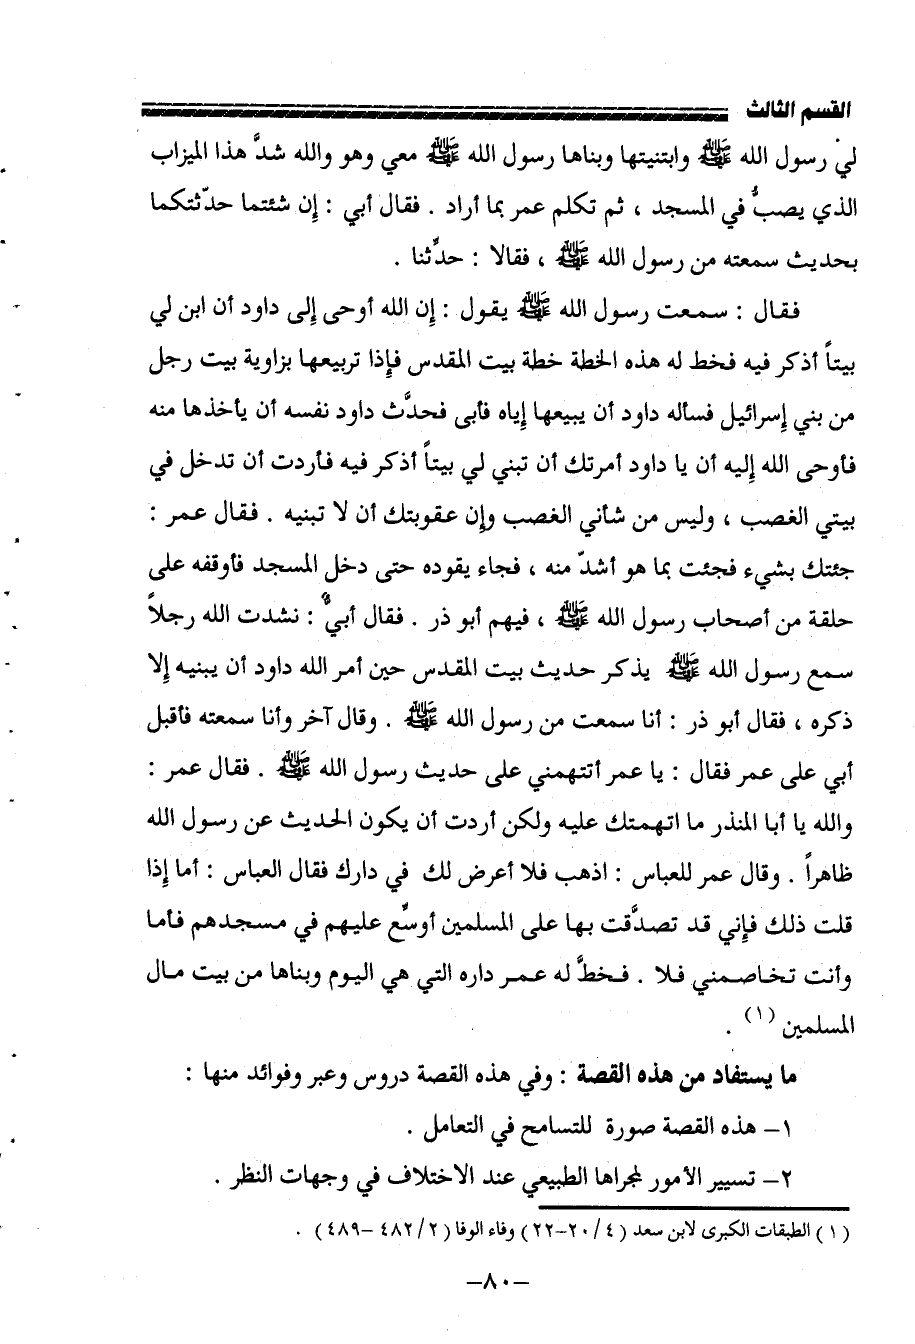 القسم الثالث
لي رسول الله ﷺ وابتنيتها وبناها رسول الله ﷺ معي وهو والله شدَّ هذا الميزاب
الذي يصبُّ في المسجد ، ثم تكلم عمر بما أراد . فقال أبي : إن شئتما حدّثتكما
بحديث سمعته من رسول الله ﷺ ، فقالا : حدِّثنا .
فقال : سمعت رسول الله ﷺ يقول : إن الله أوحى إلى داود أن ابن لي
بيتاً أذكر فيه فخط له هذه الخطة خطة بيت المقدس فإذا تربيعها بزاوية بيت رجل
من بني إسرائيل فسأله داود أن يبيعها إياه فأبى فحدَّث داود نفسه أن يأخذها منه
فأوحى الله إليه أن يا داود أمرتك أن تبني لي بيتاً أذكر فيه فأردت أن تدخل في
بيتي الغصب ، وليس من شأني الغصب وإن عقوبتك أن لا تبنيه . فقال عمر :
جئتك بشيء فجئت بما هو أشدّ منه ، فجاء يقوده حتى دخل المسجد فأوقفه على
حلقة من أصحاب رسول الله ﷺ ، فيهم أبو ذر . فقال أبيٌّ : نشدت الله رجلاً
سمع رسول الله ﷺ يذكر حديث بيت المقدس حين أمر الله داود أن يبنيه إلا
ذكره ، فقال أبو ذر : أنا سمعت من رسول الله ﷺ . وقال آخر وأنا سمعته فأقبل
أبي على عمر فقال : يا عمر أتتهمني على حديث رسول الله ﷺ . فقال عمر :
والله يا أبا المنذر ما اتهمتك عليه ولكن أردت أن يكون الحديث عن رسول الله
ظاهراً . وقال عمر للعباس : اذهب فلا أعرض لك في دارك فقال العباس : أما إذا
قلت ذلك فإني قد تصدَّقت بها على المسلمين أوسِّع عليهم في مسجدهم فأما
وأنت تخاصمني فلا . فخطَّ له عمر داره التي هي اليوم وبناها من بيت مال
المسلمين (١) .
ما يستفاد من هذه القصة : وفي هذه القصة دروس وعبر وفوائد منها :
١– هذه القصة صورة للتسامح في التعامل .
٢– تسيير الأمور لمجراها الطبيعي عند الاختلاف في وجهات النظر .
(١) الطبقات الكبرى لابن سعد (٤/ ٢٠–٢٢) وفاء الوفا (٢/ ٤٨٢ –٤٨٩) .
–٨٠–